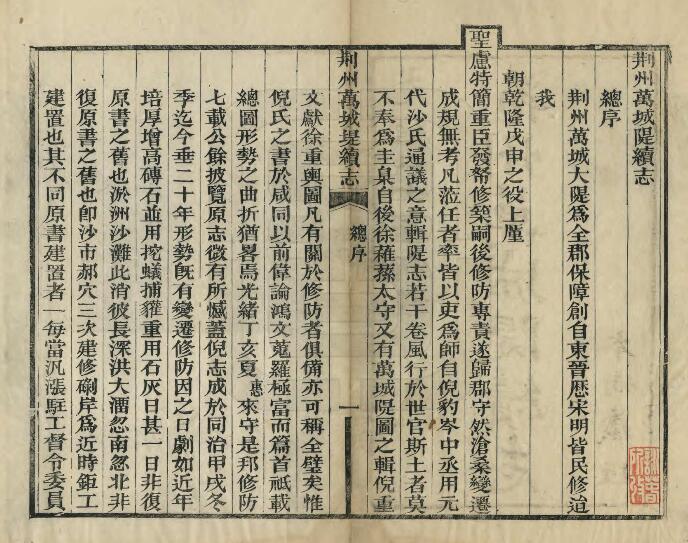 荆州萬城隄續志
總序
荆州萬城大隄爲全郡保障創自東晉歷宋明皆民修迨
我
朝乾隆戊申之役上厪
聖慮特簡重臣發帑修築嗣後修防專責遂歸郡守然滄桑變遷
成規無考凡蒞任者率皆以吏爲師自倪豹岑中丞用元
代沙氏通議之意輯隄志若干卷風行於世官斯土者莫
不奉爲圭臬自後徐蘿蓀太守又有萬城隄圖之輯倪重
荆州萬城堤續志
總序
一
文獻徐重輿圖凡有關於修防者俱備亦可稱全璧矣惟
倪氏之書於咸同以前偉論鴻文蒐羅極富而篇首祗載
總圖形勢之曲折猶畧焉光緒丁亥夏惠來守是邦修防
七載公餘披覽原志微有所憾蓋倪志成於同治甲戌冬
季迄今垂二十年形勢旣有變遷修防因之日劇如近年
培厚增高磚石並用挖蟻捕獾重用石灰日甚一日非復
原書之舊也淤洲沙灘此消彼長深洪大溜忽南忽北非
復原書之舊也卽沙市郝穴三次建修磡岸爲近時鉅工
建置也其不同原書建置者一每當汛漲駐工督令委員